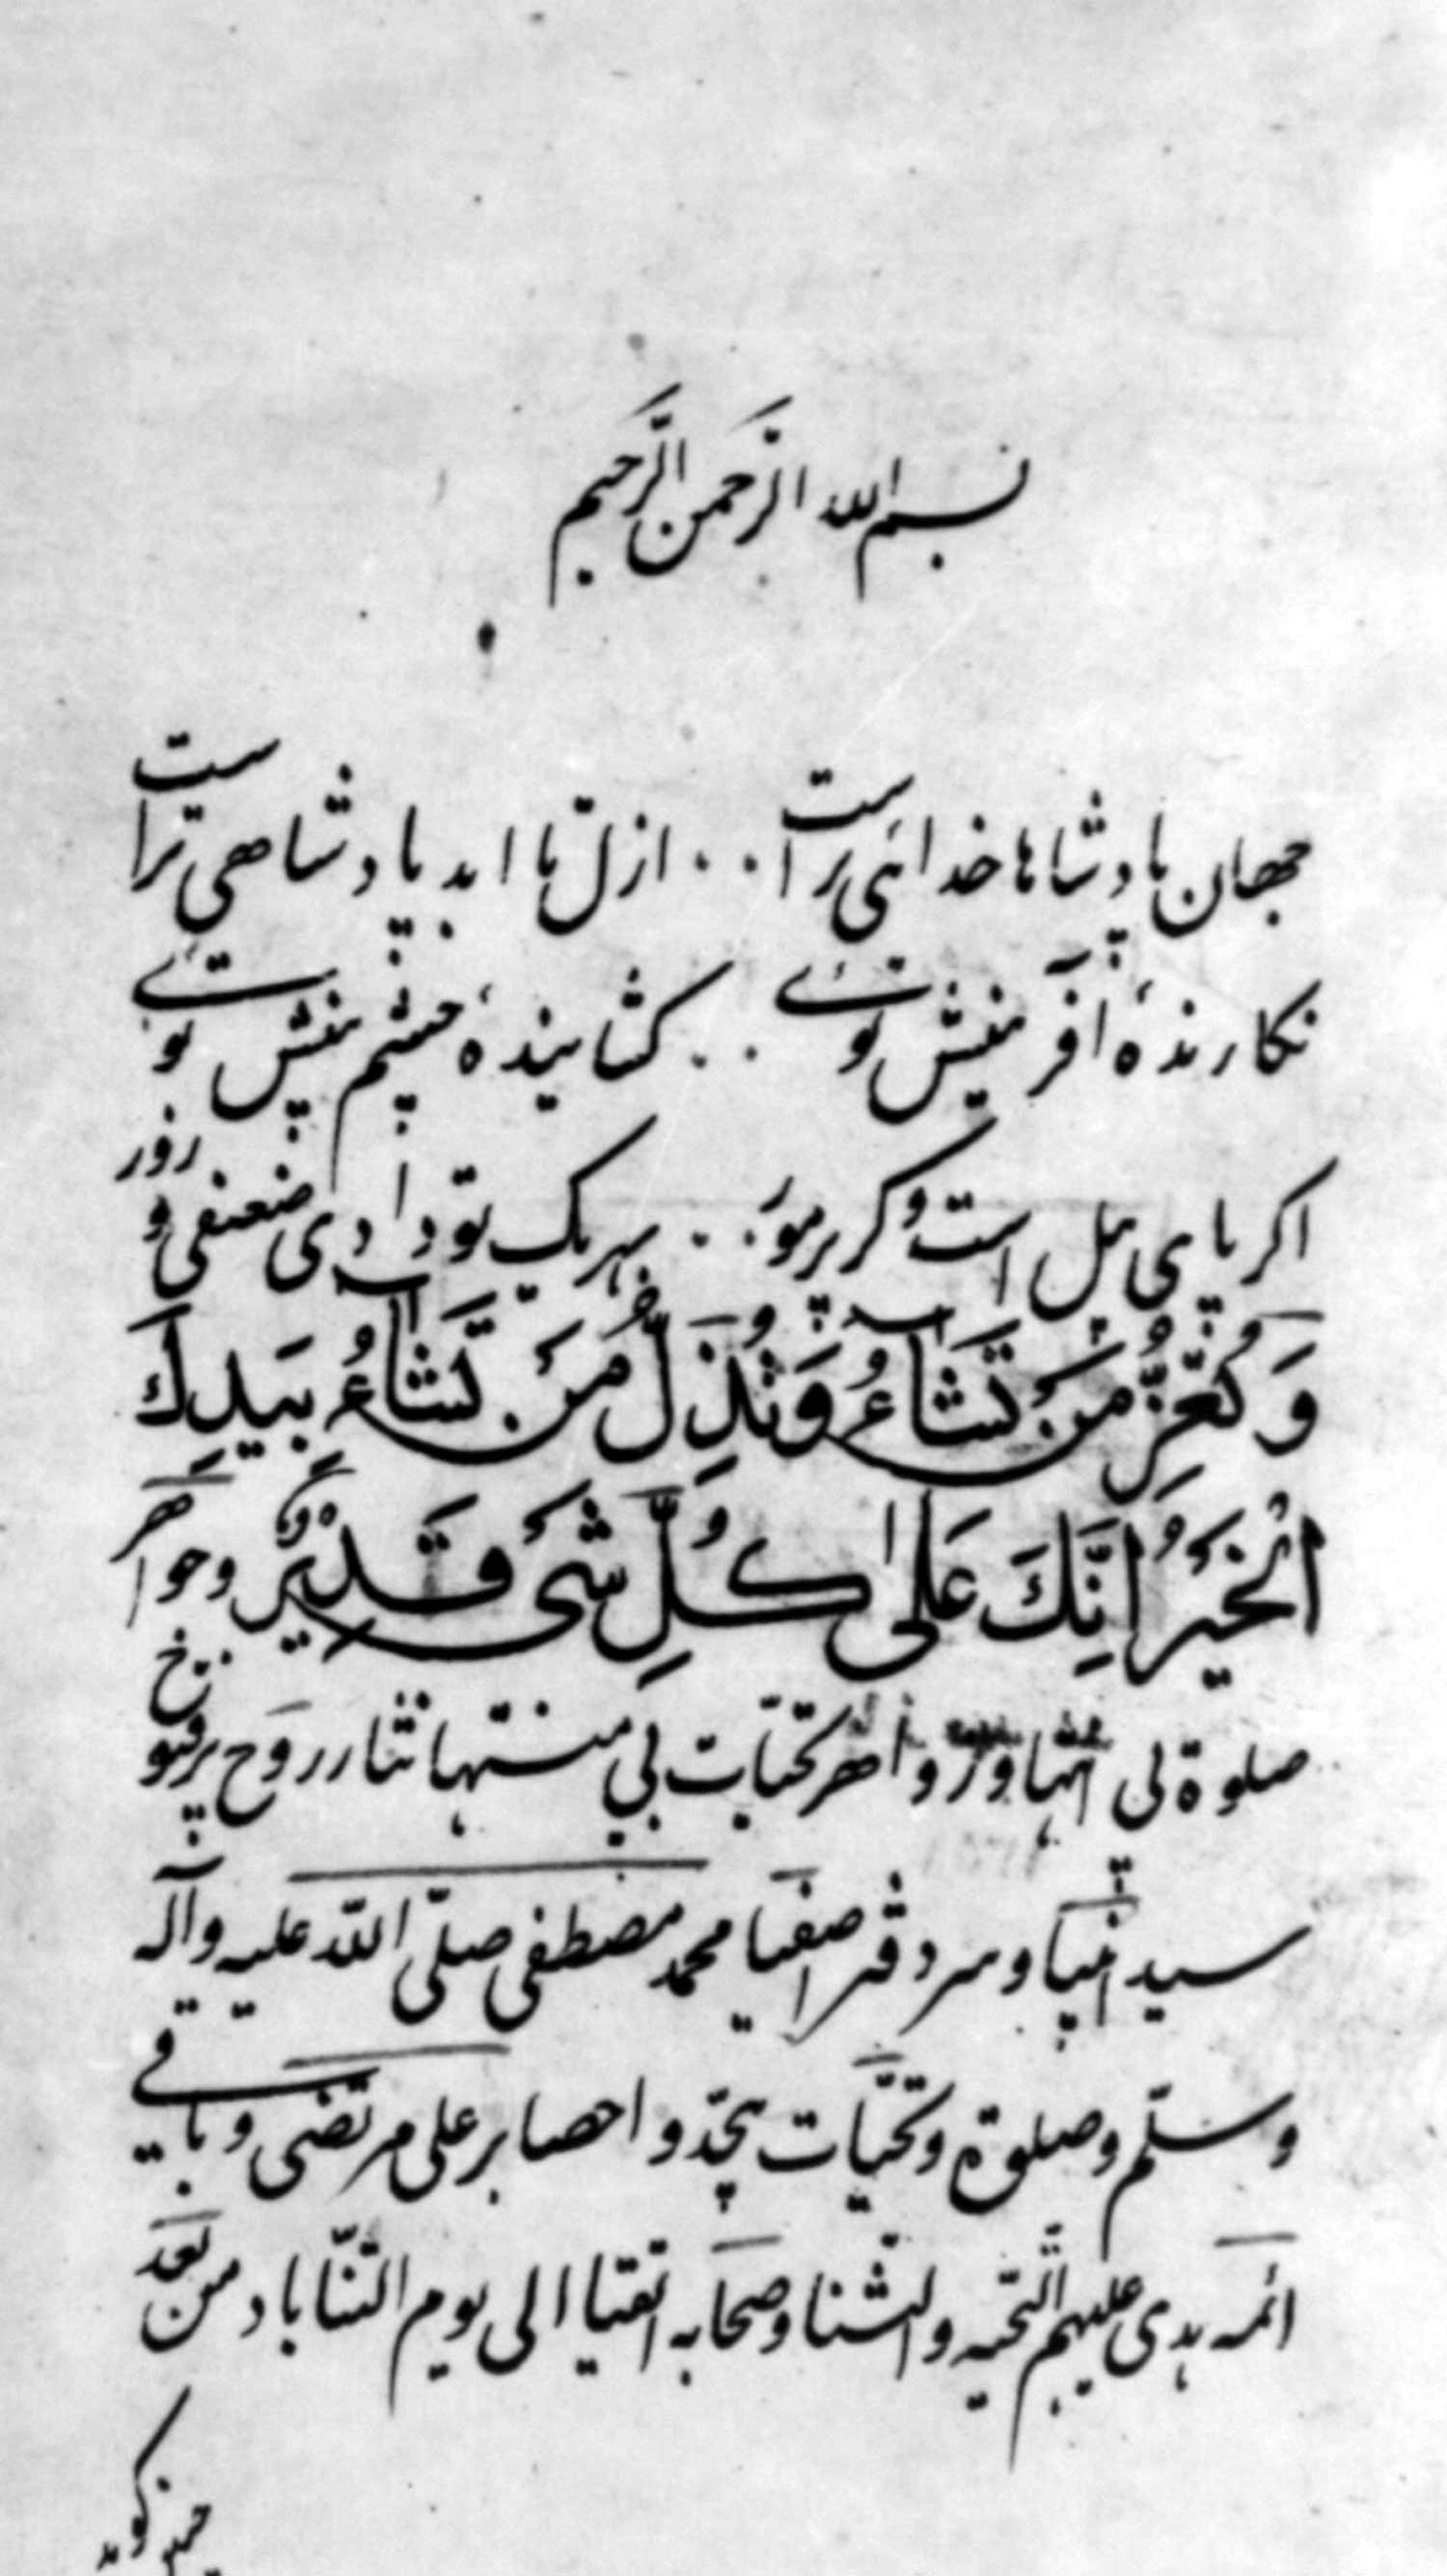 بسم الله الرّحمن الرّحیم
جهان پادشاها خدائی تراست .. ازل تا ابد پادشاهی تراست
نکارندهٔ آفرینش توئے .. کشایندهٔ چشم بینش توئے
اکر پای پیل است وکر پر مور .. بهر یک تو دادی ضعیفی و زور
وَتُعِزُّ مَنْ تَشَآءُ وَتُذِلُّ مَنْ تَشَآءُ بِیَدِكَ
الْخَیْرُ اِنَّكَ عَلٰی كُلِّ شَیْ قَدِیْرٌ و جواهر
صلوة بی انتها و زواهر تحیّات بی منتها نثار روح پرفتوح
سید انبیا و سر دفتر اصفیا محمد مصطفی صلّی اللّه علیه وآله
وسلّم وصلوة وتحیّات بیحّد و احصا بر علی مرتضی و باقے
ائمه هدی علیهم التّحیه والثنا وصحابه اتقیا الی یوم التنّاباد من بعد
چنین کوید